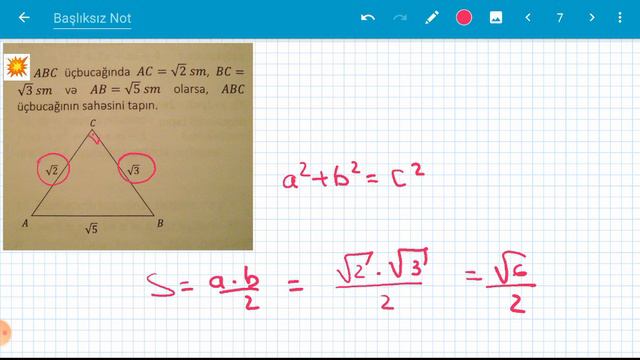 Başlıksız Not
7
ABC üçbucağında AC = √2 sm, BC =
√3 sm və AB = √5 sm olarsa, ABC
üçbucağının sahəsini tapın.
C
√2 √3
A B
√5
a²+b²=c²
S = a·b/2 = √2·√3/2 = √6/2